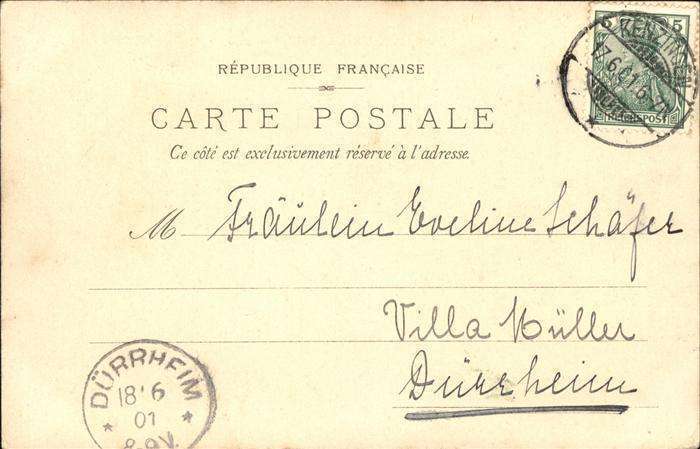 5 5
KENZINGEN
17.6.01.6-7N
REICHSPOST
RÉPUBLIQUE FRANÇAISE
CARTE POSTALE
Ce côté est exclusivement réservé à l'adresse.
M Fräulein Eveline Schäfer
Villa Müller
Dürrheim
DÜRRHEIM
18.6
* 01 *
8-9V.